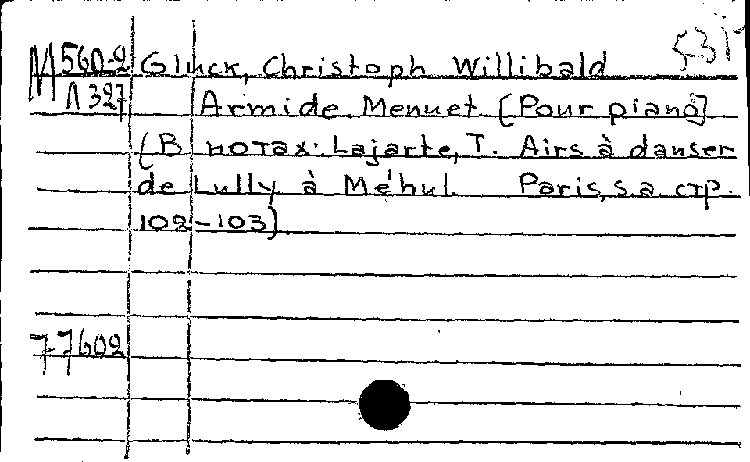 М560-2 Gluck, Christoph Willibald
Л 327 Armide. Menuet [Pour piano]
(В нотах: Lajarte, T. Airs à danser
de Lully à Méhul. Paris, s.a. стр.
102-103)
77602